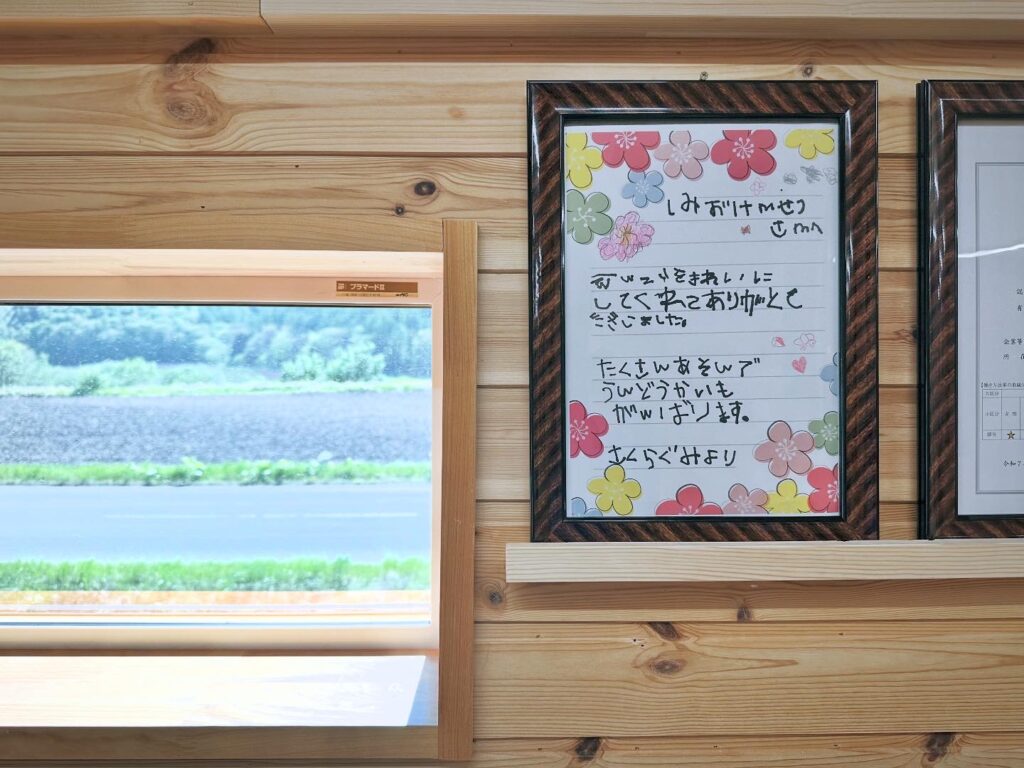 プラマードⅡ
しみおけんせつ
さんへ
えんていをきれいに
してくれてありがとう
ございました。
たくさんあそんで
うんどうかいも
がんばります。
さくらぐみより
企業等
所
令和7